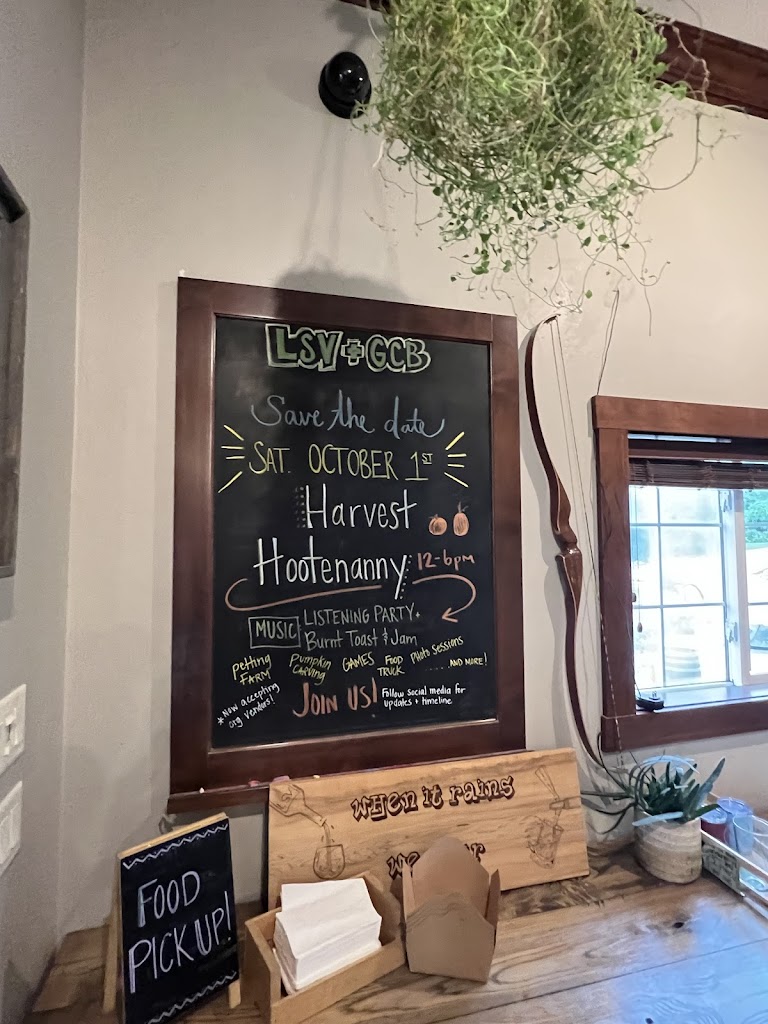 LSV + GCB
Save the date
SAT. OCTOBER 1ST
Harvest
Hootenanny 12-6pm
MUSIC LISTENING PARTY +
Burnt Toast & Jam
Petting FARM
Pumpkin CARVING
GAMES
FOOD TRUCK
Photo Sessions
.....AND MORE!
*Now accepting
org vendors!
JOIN US!
Follow social media for
updates + timeline
when it rains
we
FOOD
PICK UP!